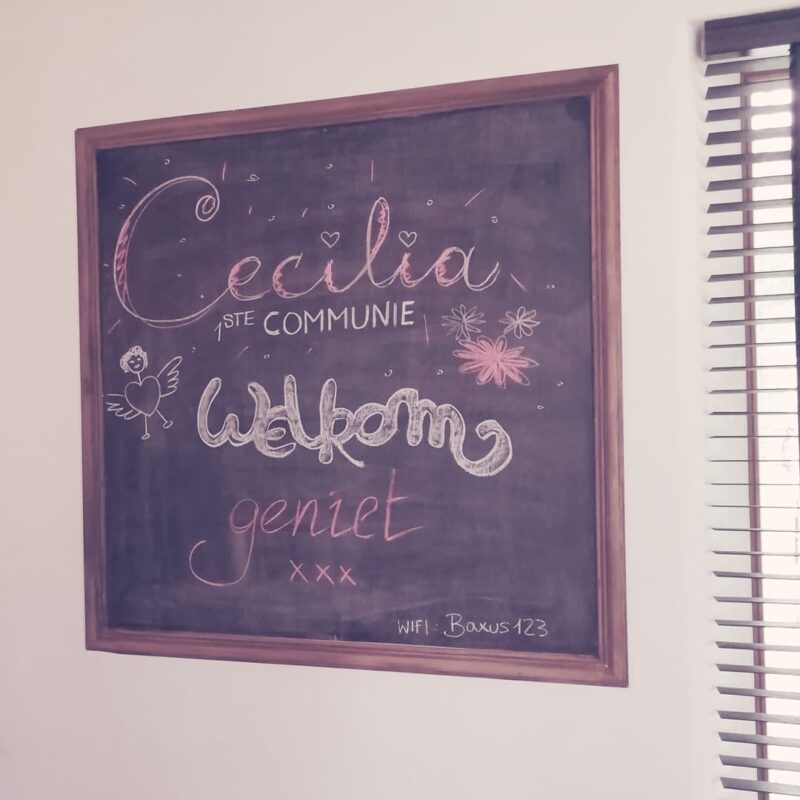 Cecilia
1STE COMMUNIE
Welkom
geniet
xxx
WIFI: Baxus123